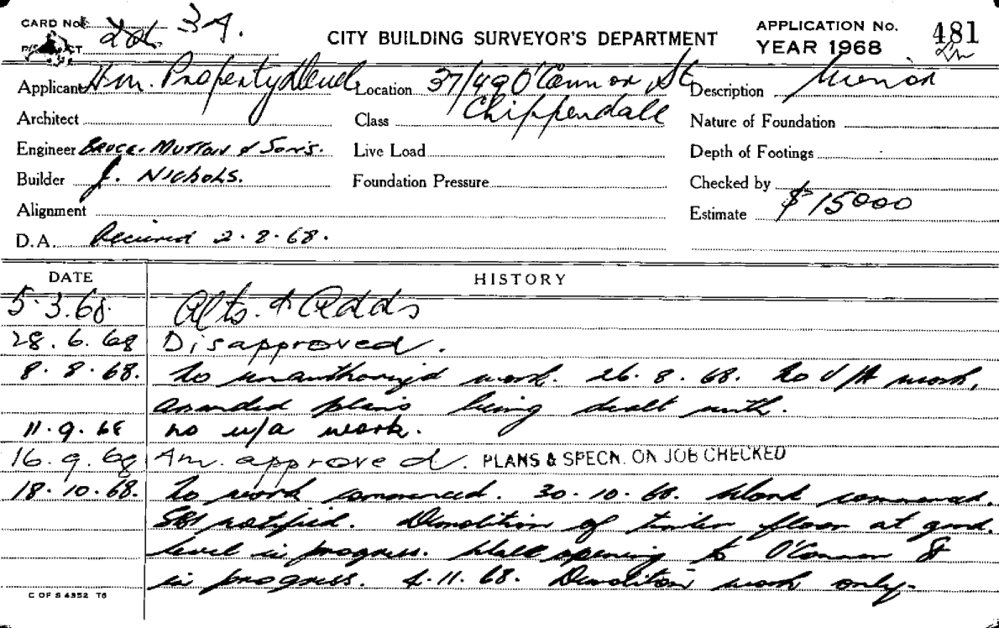 CARD No. 2d. 34.
DISTRICT
CITY BUILDING SURVEYOR'S DEPARTMENT
APPLICATION No. 481
YEAR 1968
Applicant Hm. Property Devel
Location 37/49 O'Connor St Chippendale
Description
Architect
Class
Nature of Foundation
Engineer Bruce. Mutton & Sons.
Live Load
Depth of Footings
Builder J. NICHOLS.
Foundation Pressure
Checked by
Alignment
Estimate $15000
D.A. Received 2.8.68.
DATE HISTORY
5.3.68. Alts. & Adds
28.6.68 Disapproved.
8.8.68. No unauthoriz'd work. 26.8.68. No U/A work,
amended plans being dealt with.
11.9.68 No u/a work.
16.9.68 Am. approved. PLANS & SPECN. ON JOB CHECKED
18.10.68. No work commenced. 30.10.68. Work commenced.
SBI notified. Demolition of timber floor at grnd.
level in progress. Wall opening to O'Connor St
in progress. 4.11.68. Demolition work only.
C OF S 4352 T6